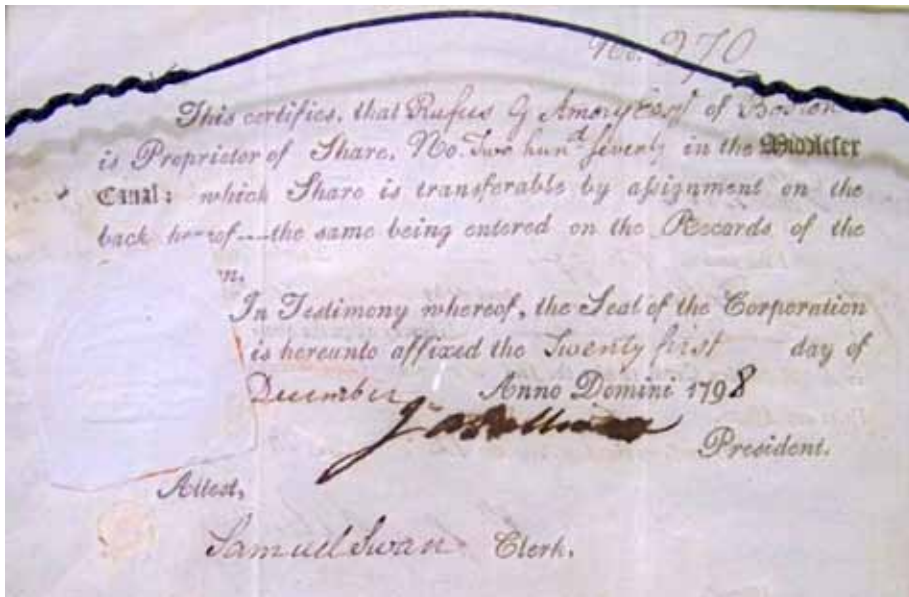 No. 270
This certifies, that Rufus G Amory Esqr of Boston
is Proprietor of Share, No. Two hund seventy in the Middlesex
Canal: which Share is transferable by assignment on the
back hereof---the same being entered on the Records of the
In Testimony whereof, the Seal of the Corporation
is hereunto affixed the Twenty first day of
December Anno Domini 1798
President.
Attest,
Samuel Swan Clerk.